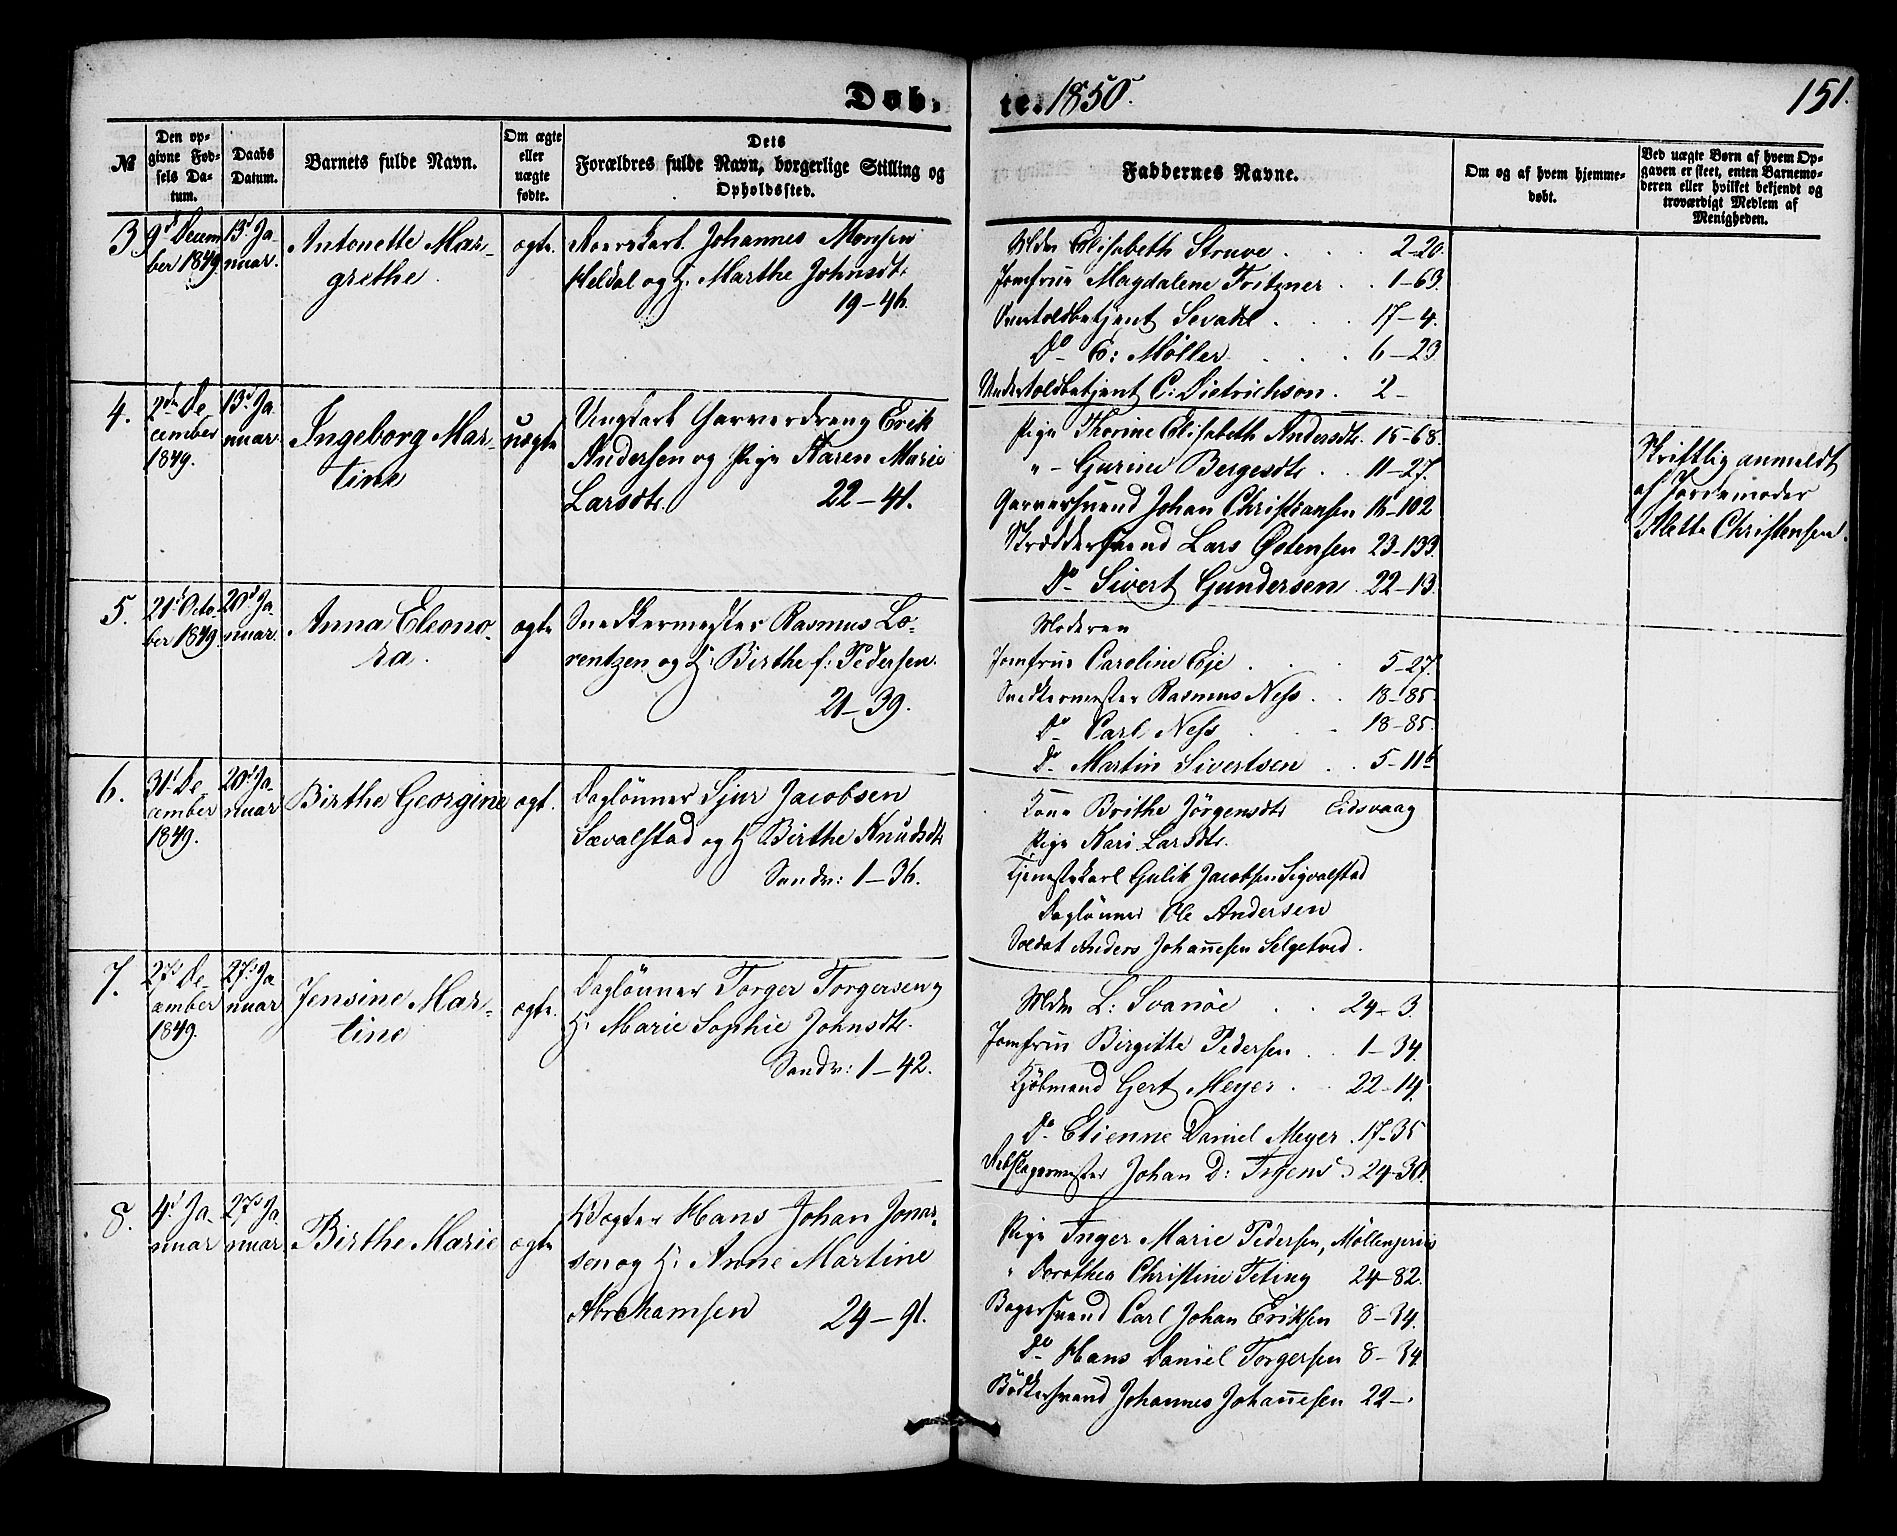 Døb- te. 1850.
151.
№
Den op-
givne Fød-
sels Da-
tum.
Daabs
Datum.
Barnets fulde Navn.
Om ægte
eller
uægte
fødte.
Dets
Forældres fulde Navn, borgerlige Stilling og
Opholdssted.
Faddernes Navne.
Om og af hvem hjemme-
døbt.
Ved uægte Børn af hvem Op-
gaven er skeet, enten Barnemo-
deren eller hvilket bekjendt og
troværdigt Medlem af
Menigheden.
3
9d Decem
ber 1849
13d Ja-
nuar.
Antonette Mar-
grethe.
ægte.
Johannes Monsen
Heldal og H. Marthe Johnsdtr
19-46.
Mdm Elisabeth Struve . . . 2-20.
Jomfrue Magdalene Fritzner . . 1-63.
Overtoldbetjent Sevahl . . . 17-4.
Do C: Møller . . . 6-23
Undertoldbetjent C: Dietrichson. 2-
4.
2den De-
cember
1849.
13d Ja-
nuar.
Ingeborg Mar-
tine
uægte
Ungkarl Garverdreng Erik
Andersen og Pige Karen Marie
Larsdtr. 22-41.
Pige Thorine Elisabeth Andersdtr. 15-68.
"- Gurine Bergesdtr . . 11-27.
Garversvend Johan Christiansen 16-102
Skræddersvend Lars Østensen 23-133.
Do Sivert Gundersen. 22-13.
Skriftlig anmeldt
af Jordemoder
Mette Christensen.
5.
21d Octo-
ber 1849.
20d Ja-
nuar.
Anna Eleono-
ra.
ægte
Snedkermester Rasmus Lo-
rentzen og H: Birthe f: Pedersen.
21-39.
Moderen
Jomfrue Caroline Eje . . . 5-27.
Snedkermester Rasmus Ness . . 18-85.
Do Carl Ness . . 18-85.
Do Martin Sivertsen . . 5-11b
6.
31d De-
cember
1849.
20d Ja-
nuar
Birthe Georgine
ægt.
Daglønner Sjur Jacobsen
Sævalstad og H Birthe Knudsdtr
Sandv: 1-36.
Kone Brithe Jørgensdtr Eidsvaag
Pige Kari Larsdtr.
Tjenestekarl Gulik Jacobsen Sigvalstad
Daglønner Ole Andersen
Soldat Anders Johannesen Helgetved.
7.
27d De-
cember
1849.
27d Ja-
nuar
Jensine Mar-
tine
ægte.
Daglønner Torger Torgersen og
H: Marie Sophie Johnsdtr.
Sandv: 1-42.
Mdm L: Svanøe . . 24-3.
Jomfrue Birgitte Pedersen . . 1-34.
Kjøbmand Gert Meyer . . 22-14.
Do Etienne Daniel Meyer . 17-35
Rebslagermester Johan D: Irgens 24-30.
8.
4d Ja-
nuar
27d Ja-
nuar
Birthe Marie
ægte
Vægter Hans Johan Jonas-
sen og H: Anne Martine
Abrahamsen 24-91.
Pige Inger Marie Pedersen, Møllenpriis
" Dorothea Christine Feting 24-82.
Bagersvend Carl Johan Eriksen 8-34.
Do Hans Daniel Torgersen 8-34
Bødkersvend Johannes Johannesen 22-.